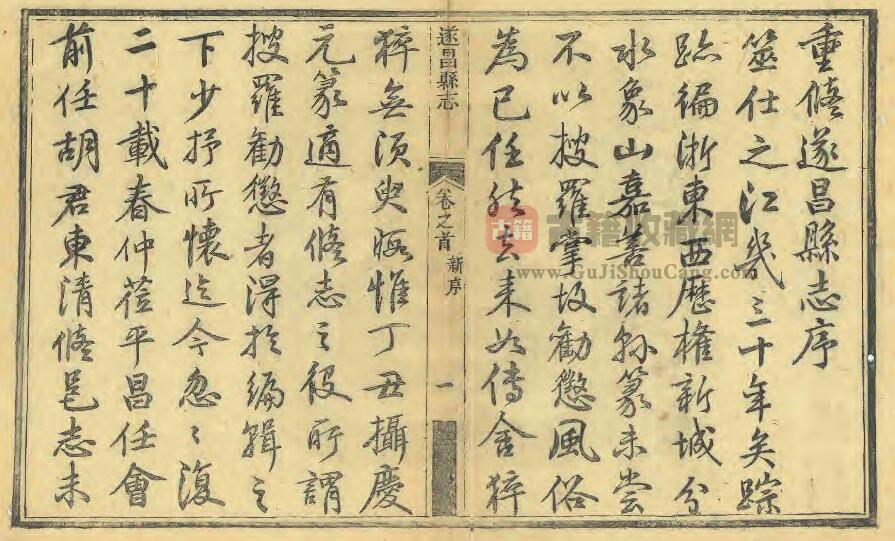 重脩遂昌縣志序
筮仕之江幾三十年矣踪
跡徧浙東西歷權新城分
水象山嘉善諸縣篆未嘗
不以搜羅掌故勸懲風俗
為已任然去来如傳舍猝
遂昌縣志 卷之首 新序 一
猝無須臾暇惟丁丑攝慶
元篆適有脩志之役所謂
搜羅勸懲者淂於編輯之
下少抒所懷迄今忽〻復
二十載春仲莅平昌任會
前任胡君東清脩邑志未
古籍 古籍收藏網
www.GuJiShouCang.com